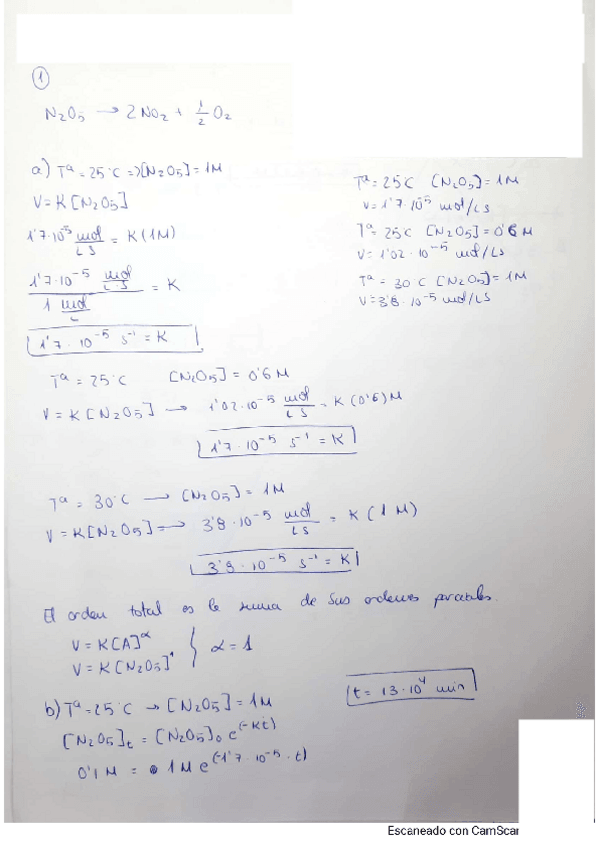 1
N₂O₅ → 2 NO₂ + 1/2 O₂
a) Tª = 25°C => [N₂O₅] = 1M
V = K [N₂O₅]
1'7·10⁻⁵ mol/LS = K (1M)
1'7·10⁻⁵ mol/L·S / 1 mol/L = K
1'7·10⁻⁵ s⁻¹ = K
Tª = 25 C [N₂O₅] = 1M
V = 1'7·10⁻⁵ mol/LS
Tª = 25C [N₂O₅] = 0'6 M
V = 1'02·10⁻⁵ mol/LS
Tª = 30 C [N₂O₅] = 1M
V = 3'8·10⁻⁵ mol/LS
Tª = 25°C [N₂O₅] = 0'6 M
V = K [N₂O₅] → 1'02·10⁻⁵ mol/LS = K (0'6) M
1'7·10⁻⁵ s⁻¹ = K
Tª = 30°C → [N₂O₅] = 1M
V = K [N₂O₅] => 3'8·10⁻⁵ mol/LS = K (1 M)
3'8·10⁻⁵ s⁻¹ = K
El orden total es la suma de sus ordenes parciales.
V = K [A]^α
V = K [N₂O₅]¹ } α = 1
b) Tª = 25°C → [N₂O₅] = 1M
t = 13·10⁴ min
[N₂O₅]t = [N₂O₅]₀ e^(-Kt)
0'1 M = 1M e^(-1'7·10⁻⁵·t)
Escaneado con CamScan